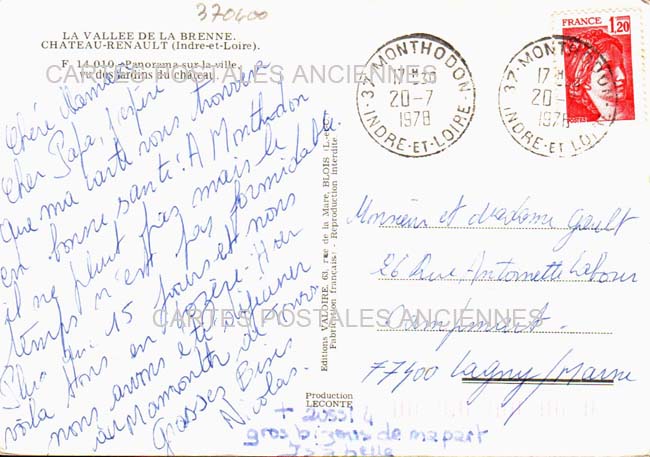 370400
LA VALLEE DE LA BRENNE.
CHATEAU-RENAULT (Indre-et-Loire).
F. 14.010 - Panorama sur la ville,
vu des jardins du château.
CARTES POSTALES ANCIENNES
Chère Maman
Cher Papa, j'espère
que ma carte vous trouvera
en bonne santé! A Monthodon
il ne pleut pas mais le
temps n'est pas formidable.
Plus que 15 jours et nous
voilà tous en Lozère. Hier
nous avons été déjeuner
au Mamouth de Tours.
Grosses Bises
Nicolas.
+ aussi
gros bisous de ma part
Isabelle
Editions VALOIRE, 63, rue de la Mare, BLOIS
Fabrication française. Reproduction interdite.
Production
LECONTE
37-MONTHODON
17H30
20-7
1978
INDRE-ET-LOIRE
37-MONTHODON
17H
20-
1978
INDRE ET LOIRE
FRANCE
1,20
Monsieur et Madame Gault
26 Rue Antoinette Labour
Dampmart.
77400 Lagny/Marne
CARTES POSTALES ANCIENNES